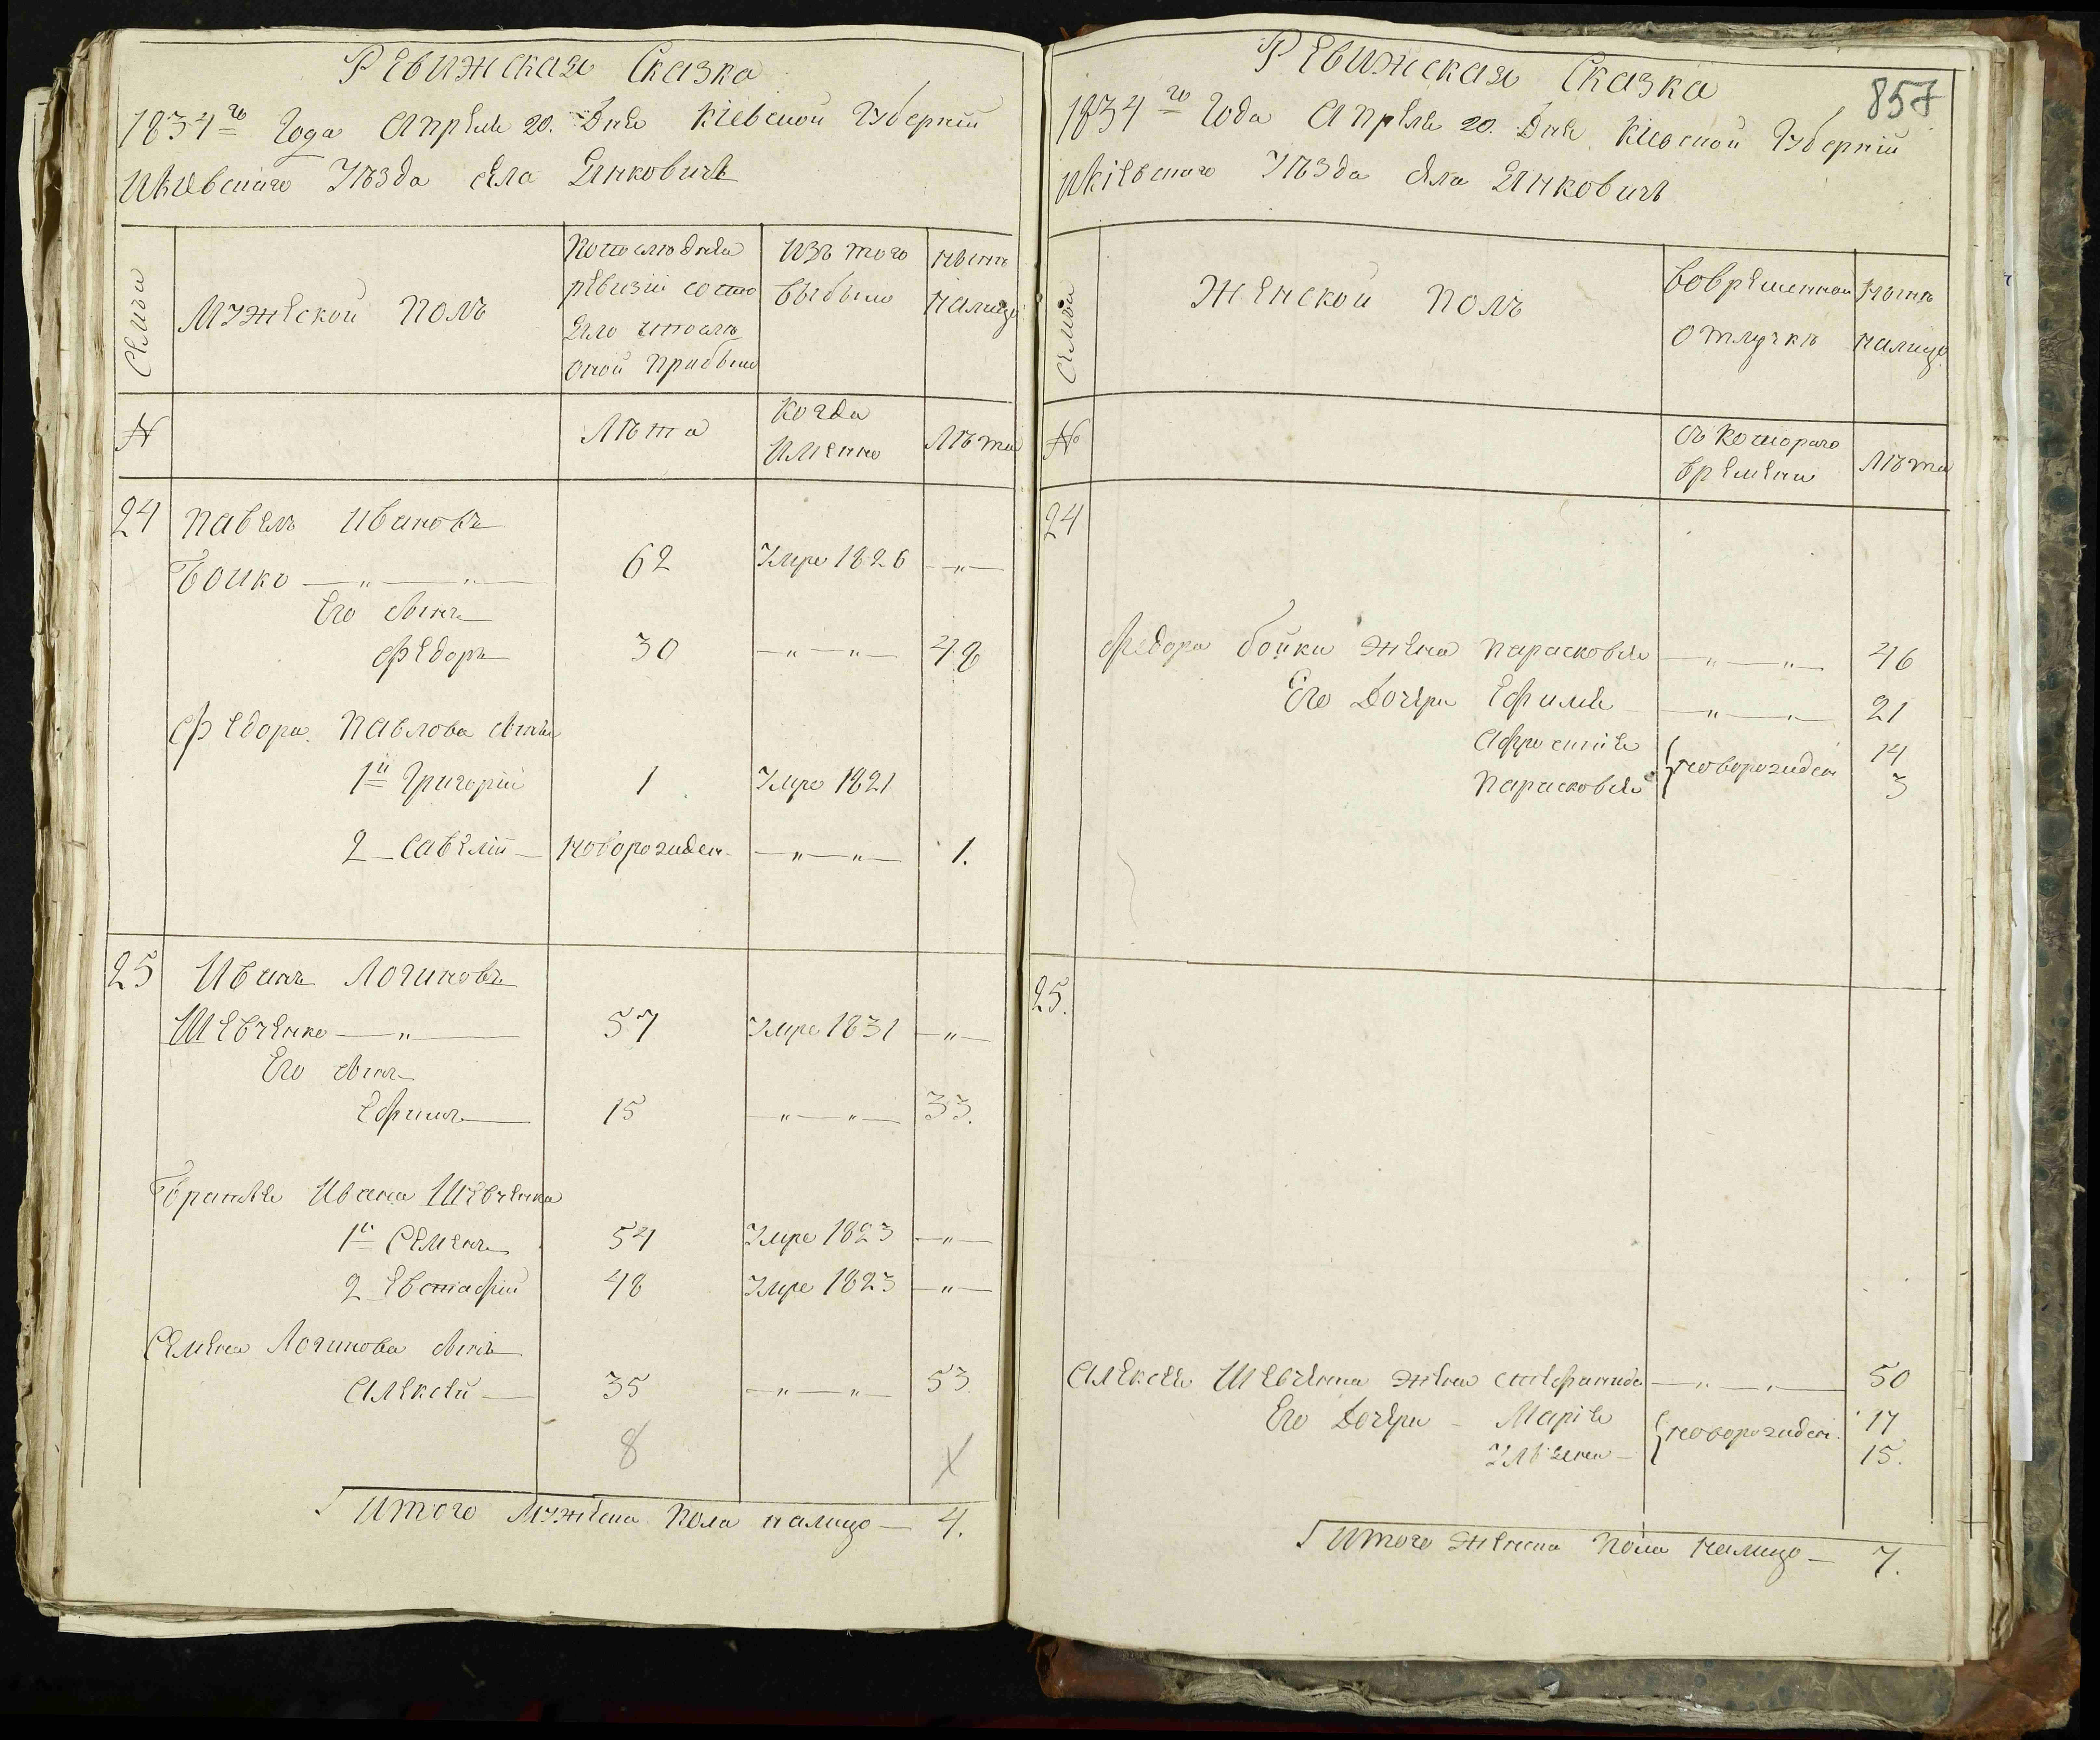 Ревижская Сказка
1834го Года Апреля 20. Дня Кіевской Губерніи
иКіевскаго Уѣзда села Янковичь
Семьи
Мужеской полъ
По последней
ревизіи состо
яло и после
оной прибыло
Изъ того
выбыло
Нынѣ
налицо
№
Лѣта
Когда
Именно
Лѣта
24
Павелъ Ивановъ
Бойко — „ — „ —
62
Умре 1826
— „ —
Его сынъ
Федоръ
30
— „ — „ —
48
Федора Павлова сыны
1й Григорій
1
Умре 1821
2 Савелій
новорожден
— „ — „ —
1.
25
Иванъ Логиновъ
Шевченко — „ —
57
Умре 1831
— „ —
Его сынъ
Ефимъ
15
— „ — „ —
33.
Братья Ивана Шевченка
1й Семенъ
54
Умре 1823
— „ —
2 Евстафій
48
Умре 1823
— „ —
Семена Логинова сынъ
Алексей
35
— „ — „ —
53.
8
Итого Мужеска Пола налицо — 4.
857
Ревижская Сказка
1834го Года Апреля 20. Дня Кіевской Губерніи
иКіевскаго Уѣзда села Янковичь
Семьи
Женской полъ
Вовременной
отлучкѣ
Нынѣ
налицо
№
Съ котораго
времени
Лѣта
24
Федора Бойки жена Парасковья — „ — „ — 46
Его Дочери Ефимья — „ — „ — 21
Афросинія
14
новорожден
Парасковья
3
25.
Алексея Шевченка жена Стефанида — „ — „ — 50
Его Дочери — Марія
17
новорожден.
Ульяна —
15.
Итого Женска Пола налицо — 7.